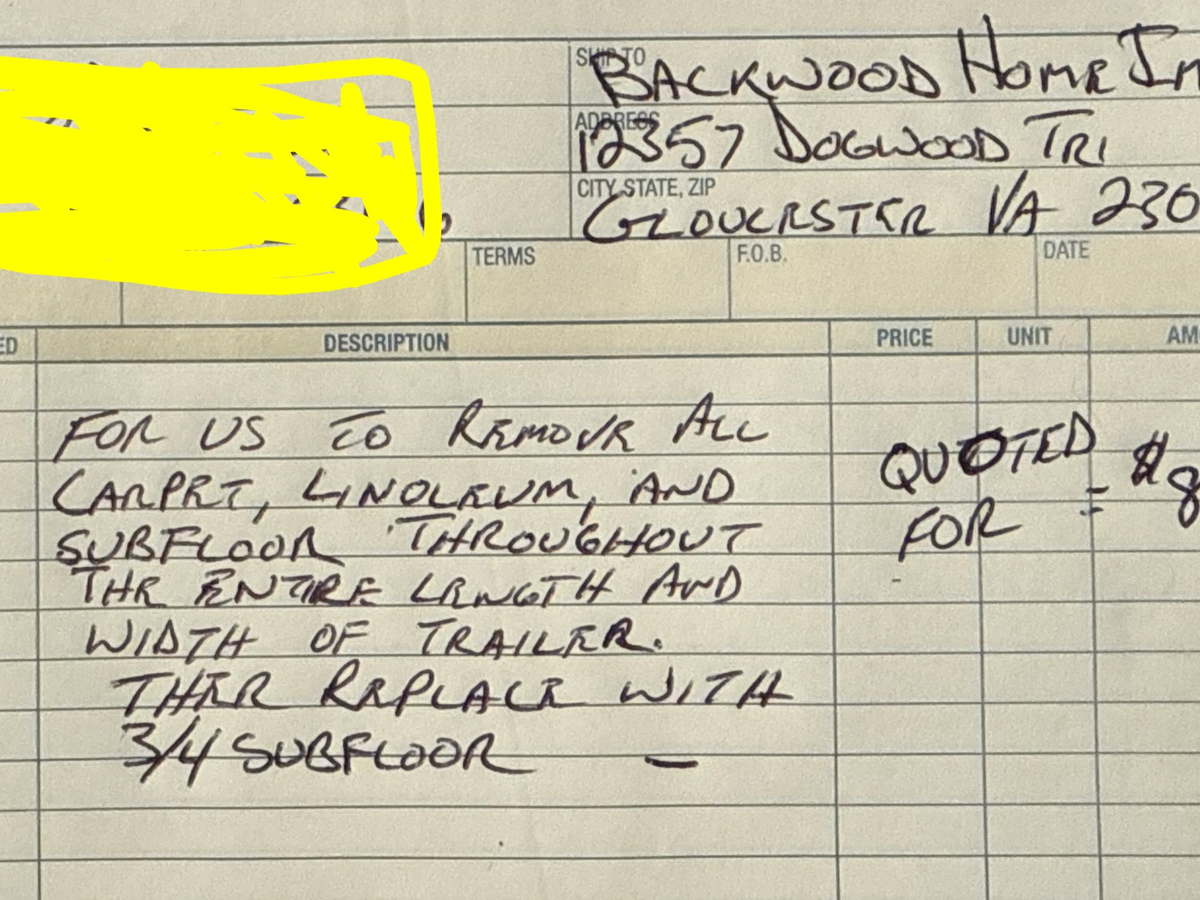 SHIP TO
BACKWOOD HOME IM
ADDRESS
12357 DOGWOOD TRL
CITY, STATE, ZIP
GLOUCESTER VA 230
TERMS
F.O.B.
DATE
ED
DESCRIPTION
PRICE
UNIT
AM
FOR US TO REMOVE ALL
CARPET, LINOLEUM, AND
SUBFLOOR THROUGHOUT
THE ENTIRE LENGTH AND
WIDTH OF TRAILER.
THER REPLACE WITH
3/4 SUBFLOOR –
QUOTED
FOR = $8